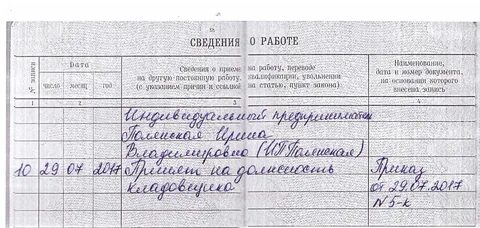 СВЕДЕНИЯ О РАБОТЕ
№ записи
Дата
число
месяц
год
Сведения о приеме на работу, переводе
на другую постоянную работу, квалификации, увольнении
(с указанием причин и ссылкой на статью, пункт закона)
Наименование,
дата и номер документа,
на основании которого
внесена запись
1 2 3 4
Индивидуальный предприниматель
Поленская Ирина
Владимировна (ИП Поленская)
10 29 07 2017 Принят на должность Приказ
кладовщика от 29.07.2017
N 5-к